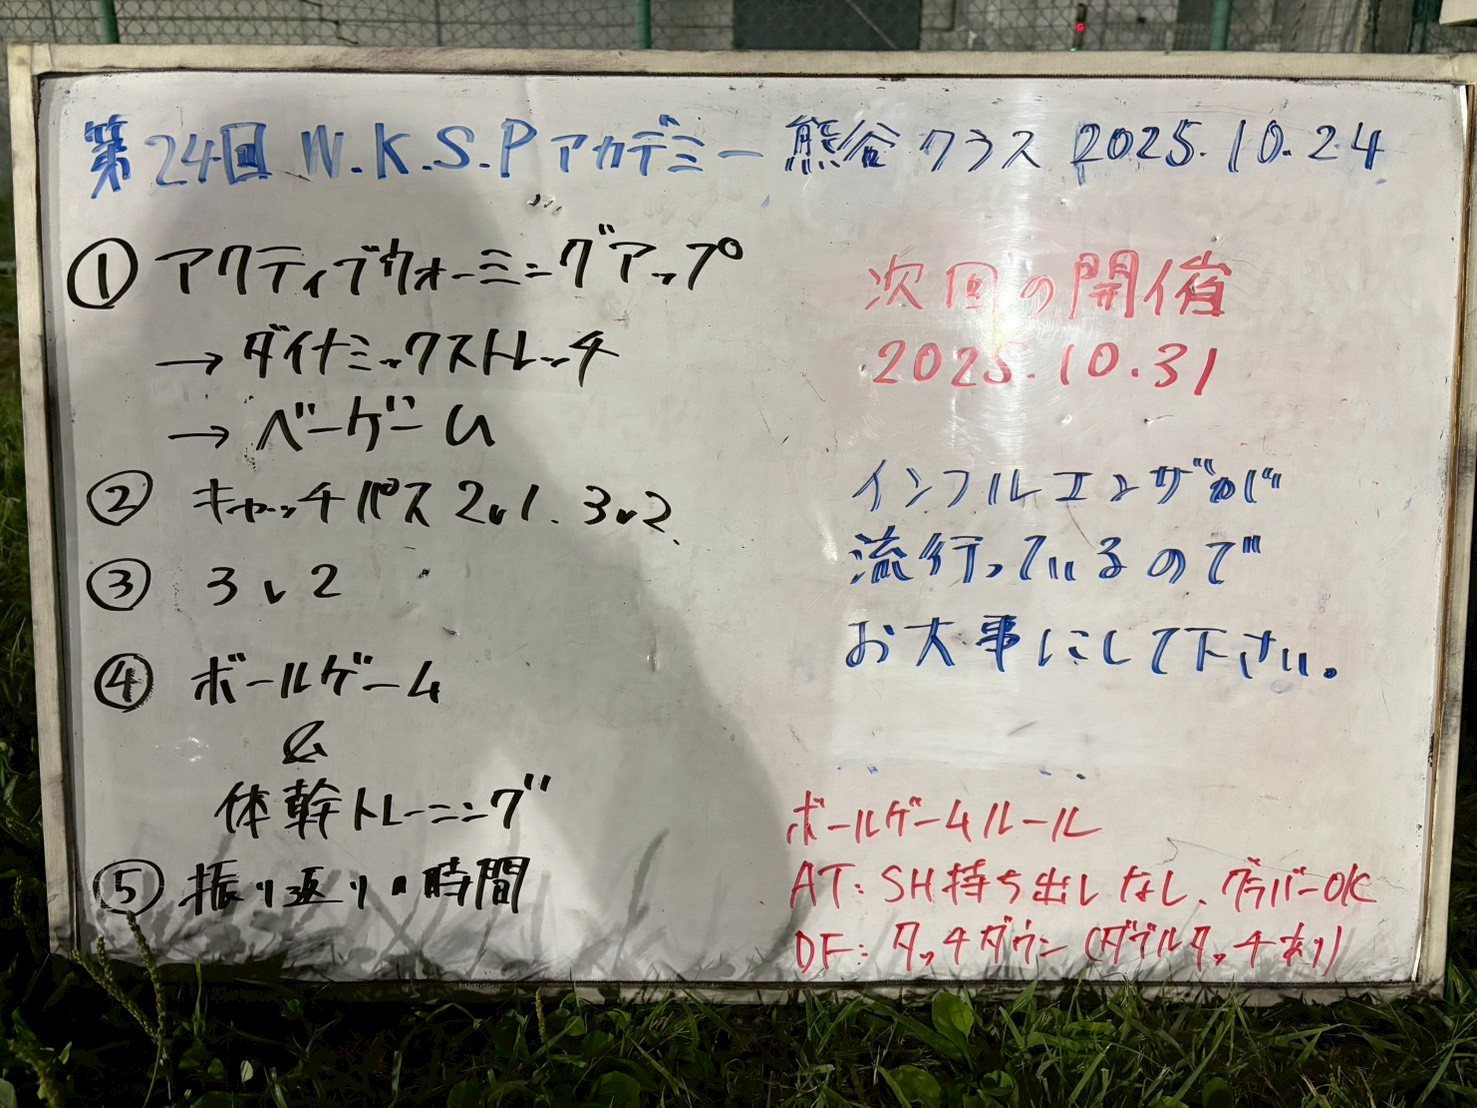 第24回 W.K.S.Pアカデミー 熊谷クラス 2025.10.24
① アクティブウォーミングアップ
→ ダイナミックストレッチ
→ ベーゲーム
② キャッチパス 2v1. 3v2
③ 3v2
④ ボールゲーム
&
体幹トレーニング
⑤ 振り返り時間
次回の開催
2025.10.31
インフルエンザが
流行っているので
お大事にして下さい。
ボールゲームルール
AT: SH持ち出しなし、グラバーOK
DF: タッチダウン(ダブルタッチあり)